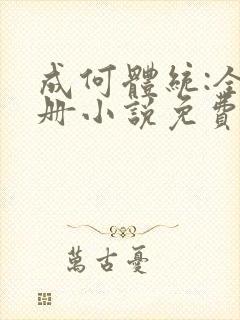 成何體統:全
册小說免費
萬古憂